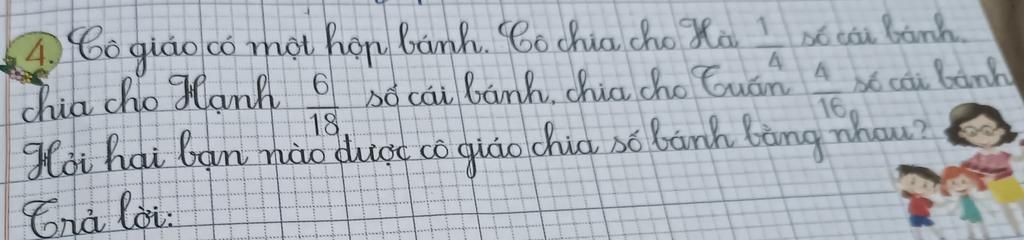 4. Cô giáo có một hộp bánh. Cô chia cho Hà 1/4 số cái bánh.
chia cho Hạnh 6/18 số cái bánh, chia cho Tuấn 4/16 số cái bánh
Hỏi hai bạn nào được cô giáo chia số bánh bằng nhau?
Trả lời: